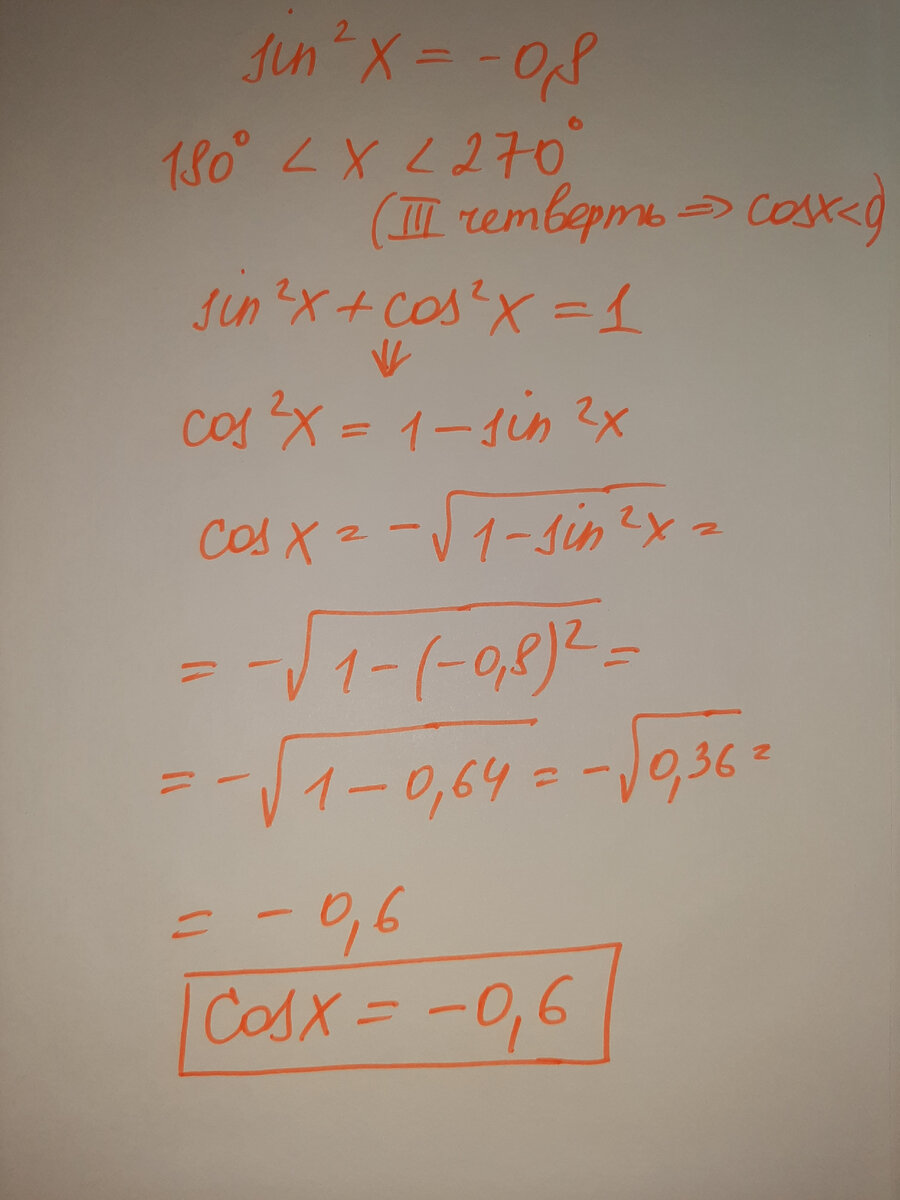 sin²x = -0,8
180° < x < 270°
(III четверть ⇒ cosx<0)
sin²x + cos²x = 1
⇓
cos²x = 1 - sin²x
cos x = -√(1 - sin²x) =
= -√(1 - (-0,8)²) =
= -√(1 - 0,64) = -√0,36 =
= - 0,6
cosx = -0,6